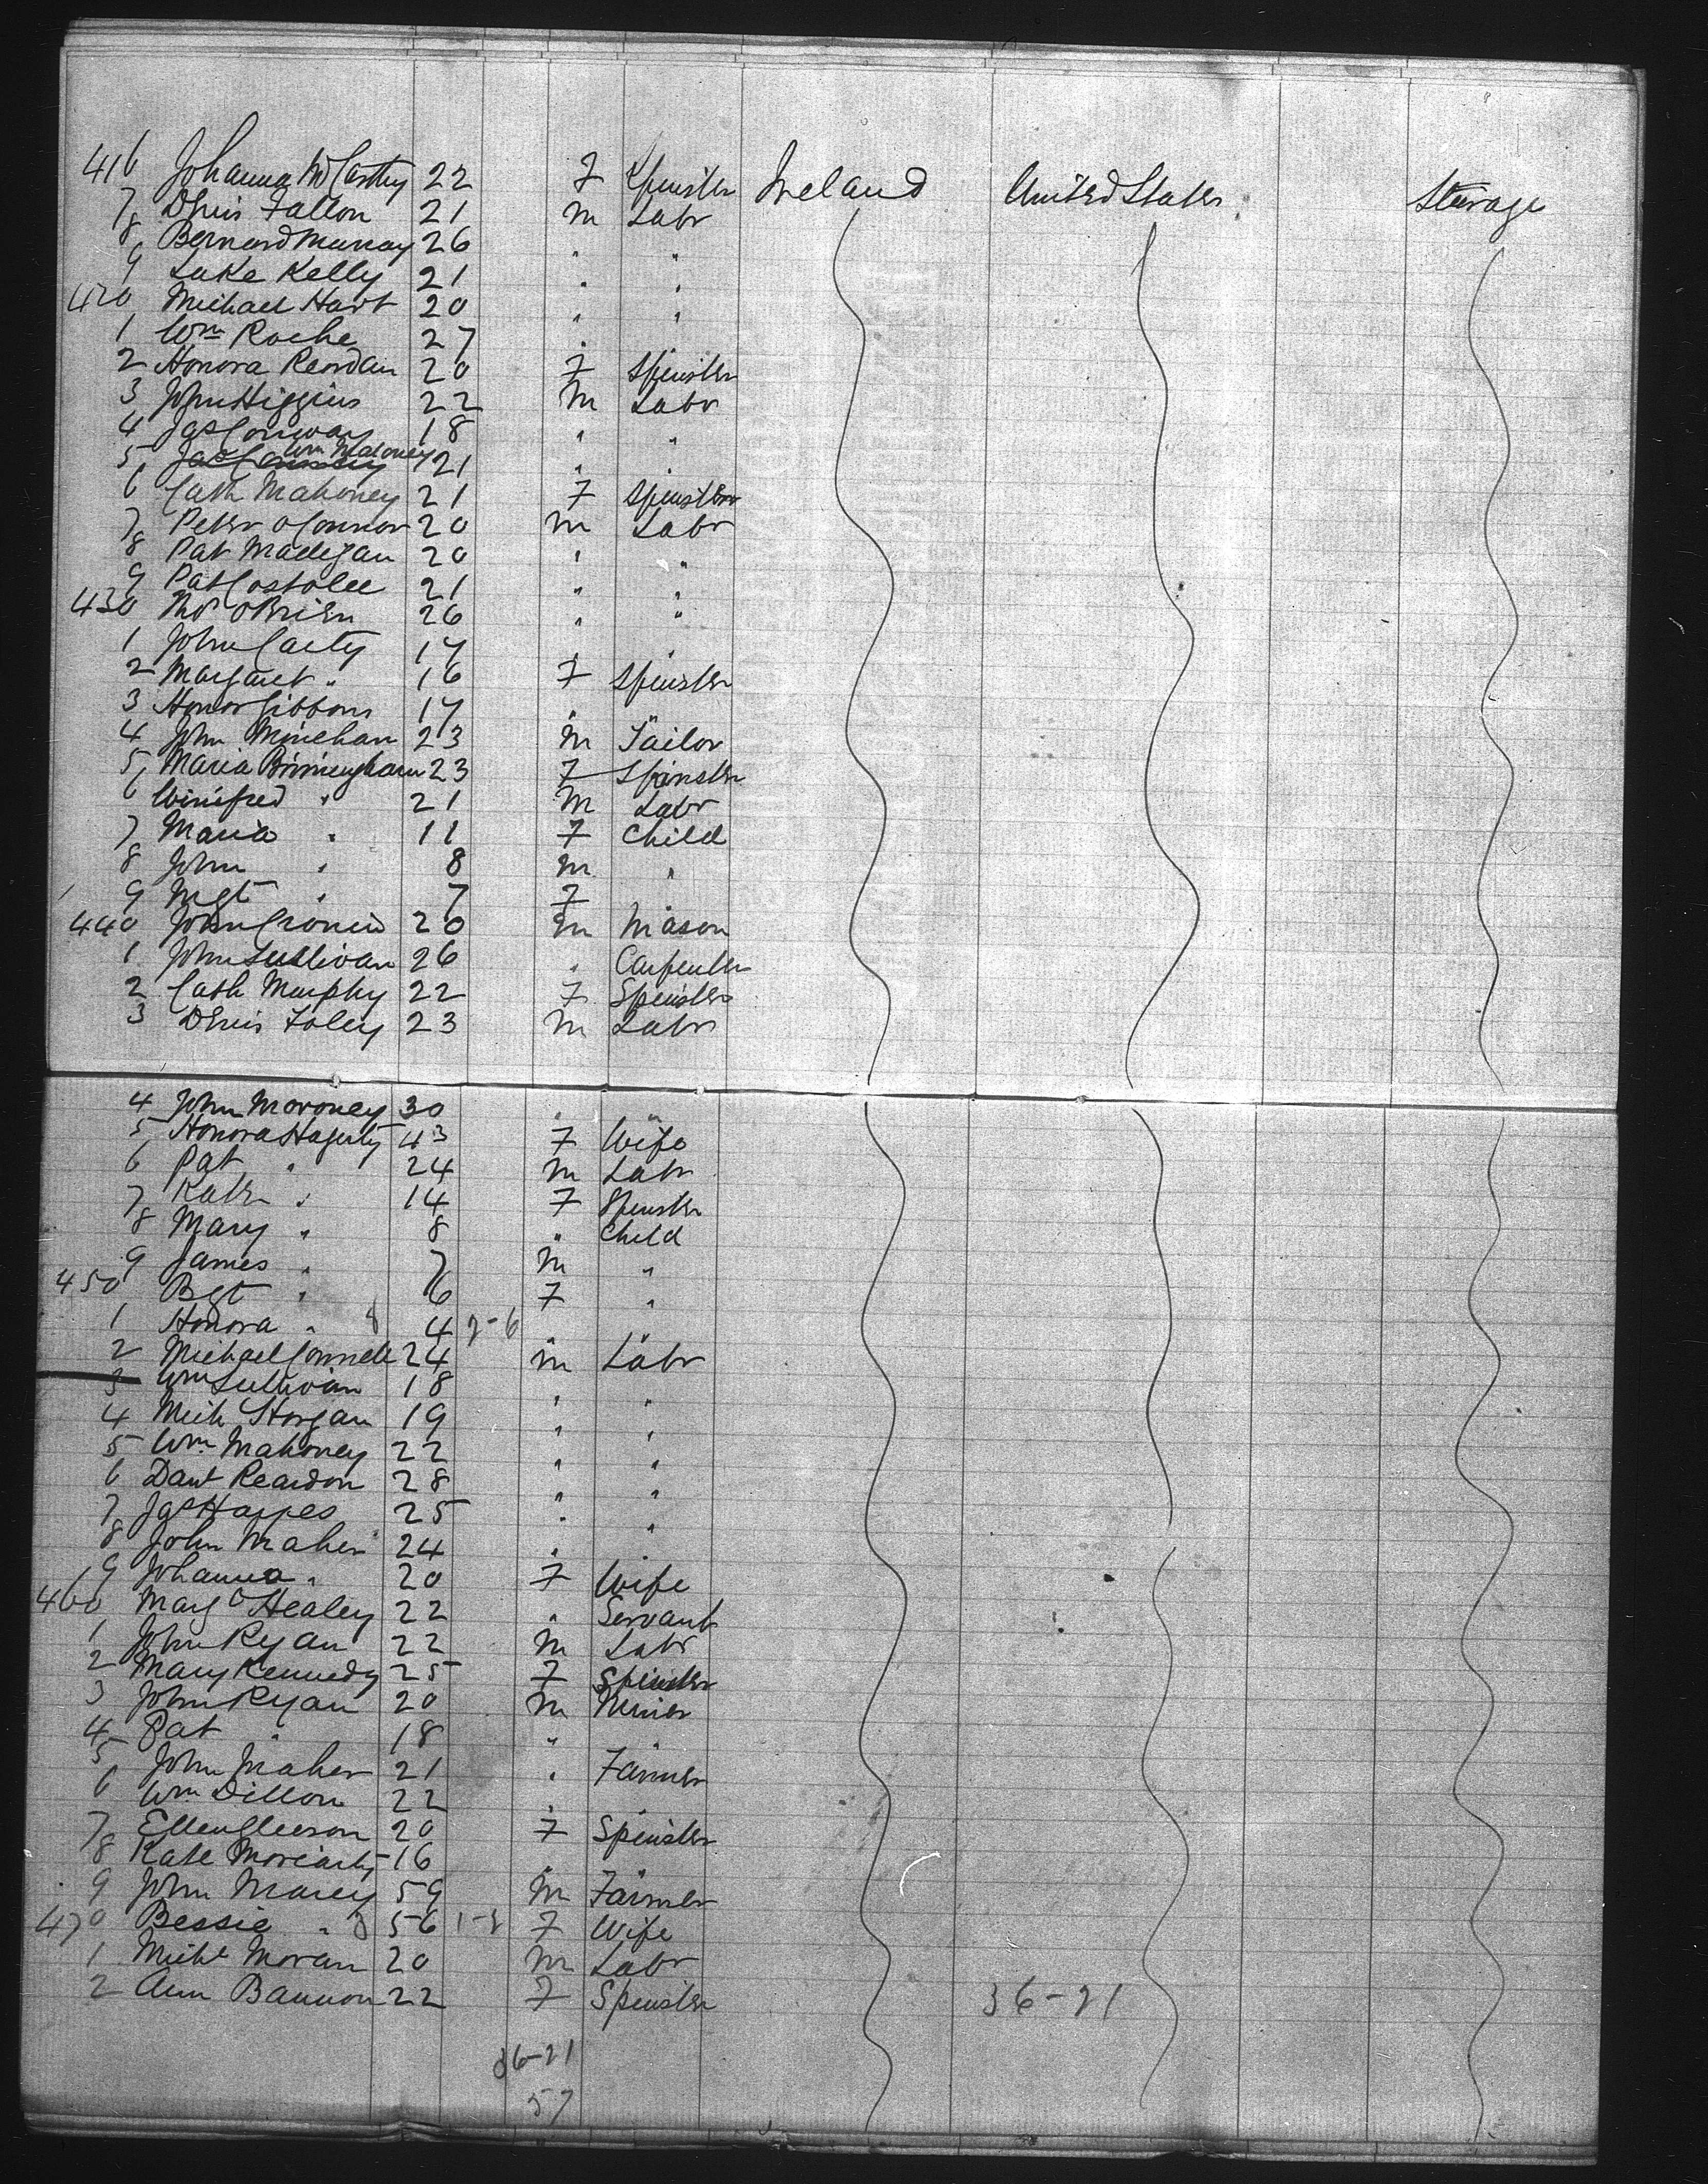 416 Johanna McCarthy 22 F Spinster Ireland United States Steerage
7 Denis Fallon 21 M Labr
8 Bernard Murray 26 " "
9 Luke Kelly 21 " "
420 Michael Hart 20 " "
1 Wm Roche 27 "
2 Honora Reordan 20 F Spinster
3 John Higgins 22 M Labr
4 Jas Conway 18 " "
5 Wm Maloney 21 " "
6 Cath Mahoney 21 F Spinster
7 Peter O Connor 20 M Labr
8 Pat Madigan 20 " "
9 Pat Costolee 21 " "
430 Thos O Brien 26 " "
1 John Carty 17 " "
2 Margaret " 16 F Spinster
3 Honor Gibbons 17 " "
4 John Minehan 23 M Tailor
5 Maria Birmingham 23 F Spinster
6 Winifred " 21 M Labr
7 Maria " 11 F Child
8 John " 8 M "
9 Mgt " 7 F
440 John Cronin 20 M Mason
1 John Sullivan 26 " Carpenter
2 Cath Murphy 22 F Spinster
3 Denis Foley 23 M Labr
4 John Moroney 30 " "
5 Honora Hagerty 43 F Wife
6 Pat " 24 M Labr
7 Kate " 14 F Spinster
8 Mary " 8 " Child
9 James " 7 M "
450 Bgt " 6 F "
1 Honora " 8 4 2-6 "
2 Michael Connell 24 M Labr
3 Wm Sullivan 18 " "
4 Mich Horgan 19 " "
5 Wm Mahoney 22 " "
6 Danl Reardon 28 " "
7 Jas Happes 25 " "
8 John Maher 24 "
9 Johanna " 20 F Wife
460 Mary O Healey 22 " Servant
1 John Ryan 22 M Labr
2 Mary Kennedy 25 F Spinster
3 John Ryan 20 M Miner
4 Pat " 18 "
5 John Maher 21 " Farmer
6 Wm Dillon 22 " "
7 Ellen Gleeson 20 F Spinster
8 Kate Moriarty 16 " "
9 John Marcy 59 M Farmer
470 Bessie " 56 F Wife
1 Michl Moran 20 M Labr
2 Ann Bannon 22 F Spinster 36-21
36-21
57